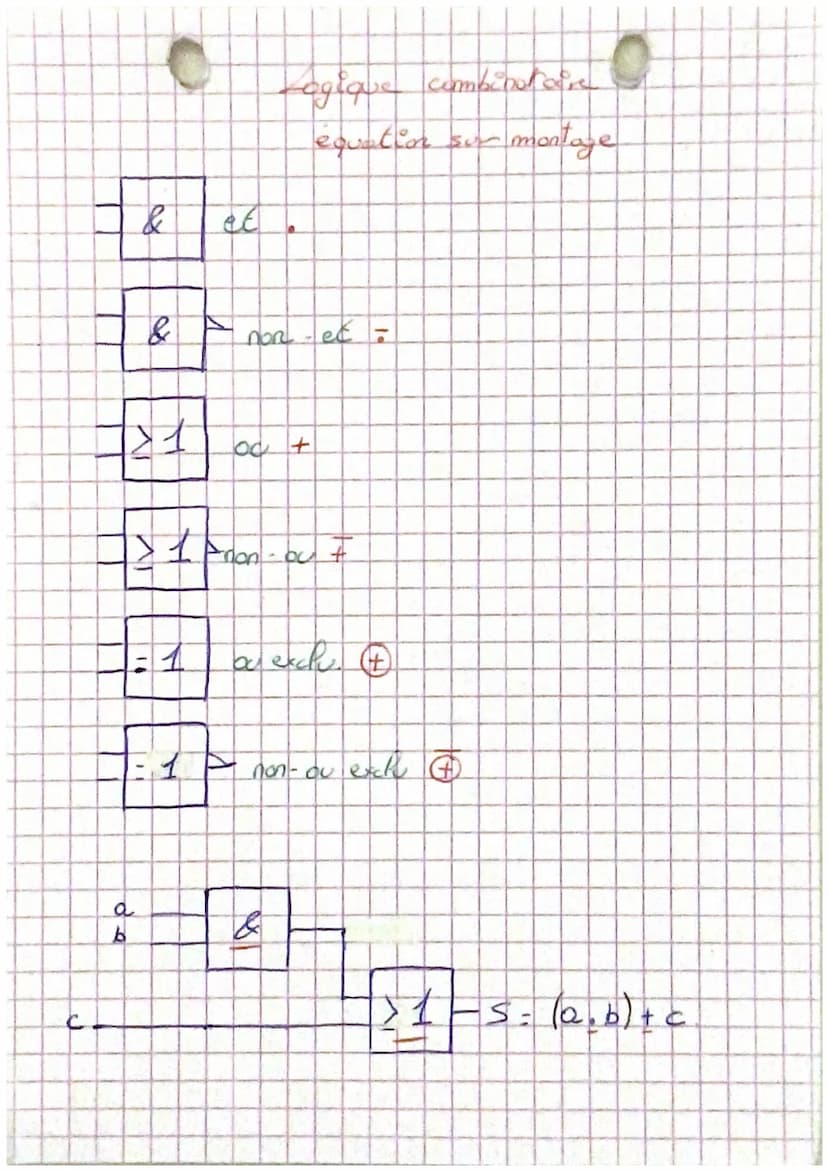 Logique combinatoire
équation sur montage
& et .
& non-et ⨪
≥1 ou +
≥1 non-ou ∓
=1 ou exclu. ⊕
=1 non-ou exclu ⊕̅
a
b
&
c
≥1 S = (a.b)+c